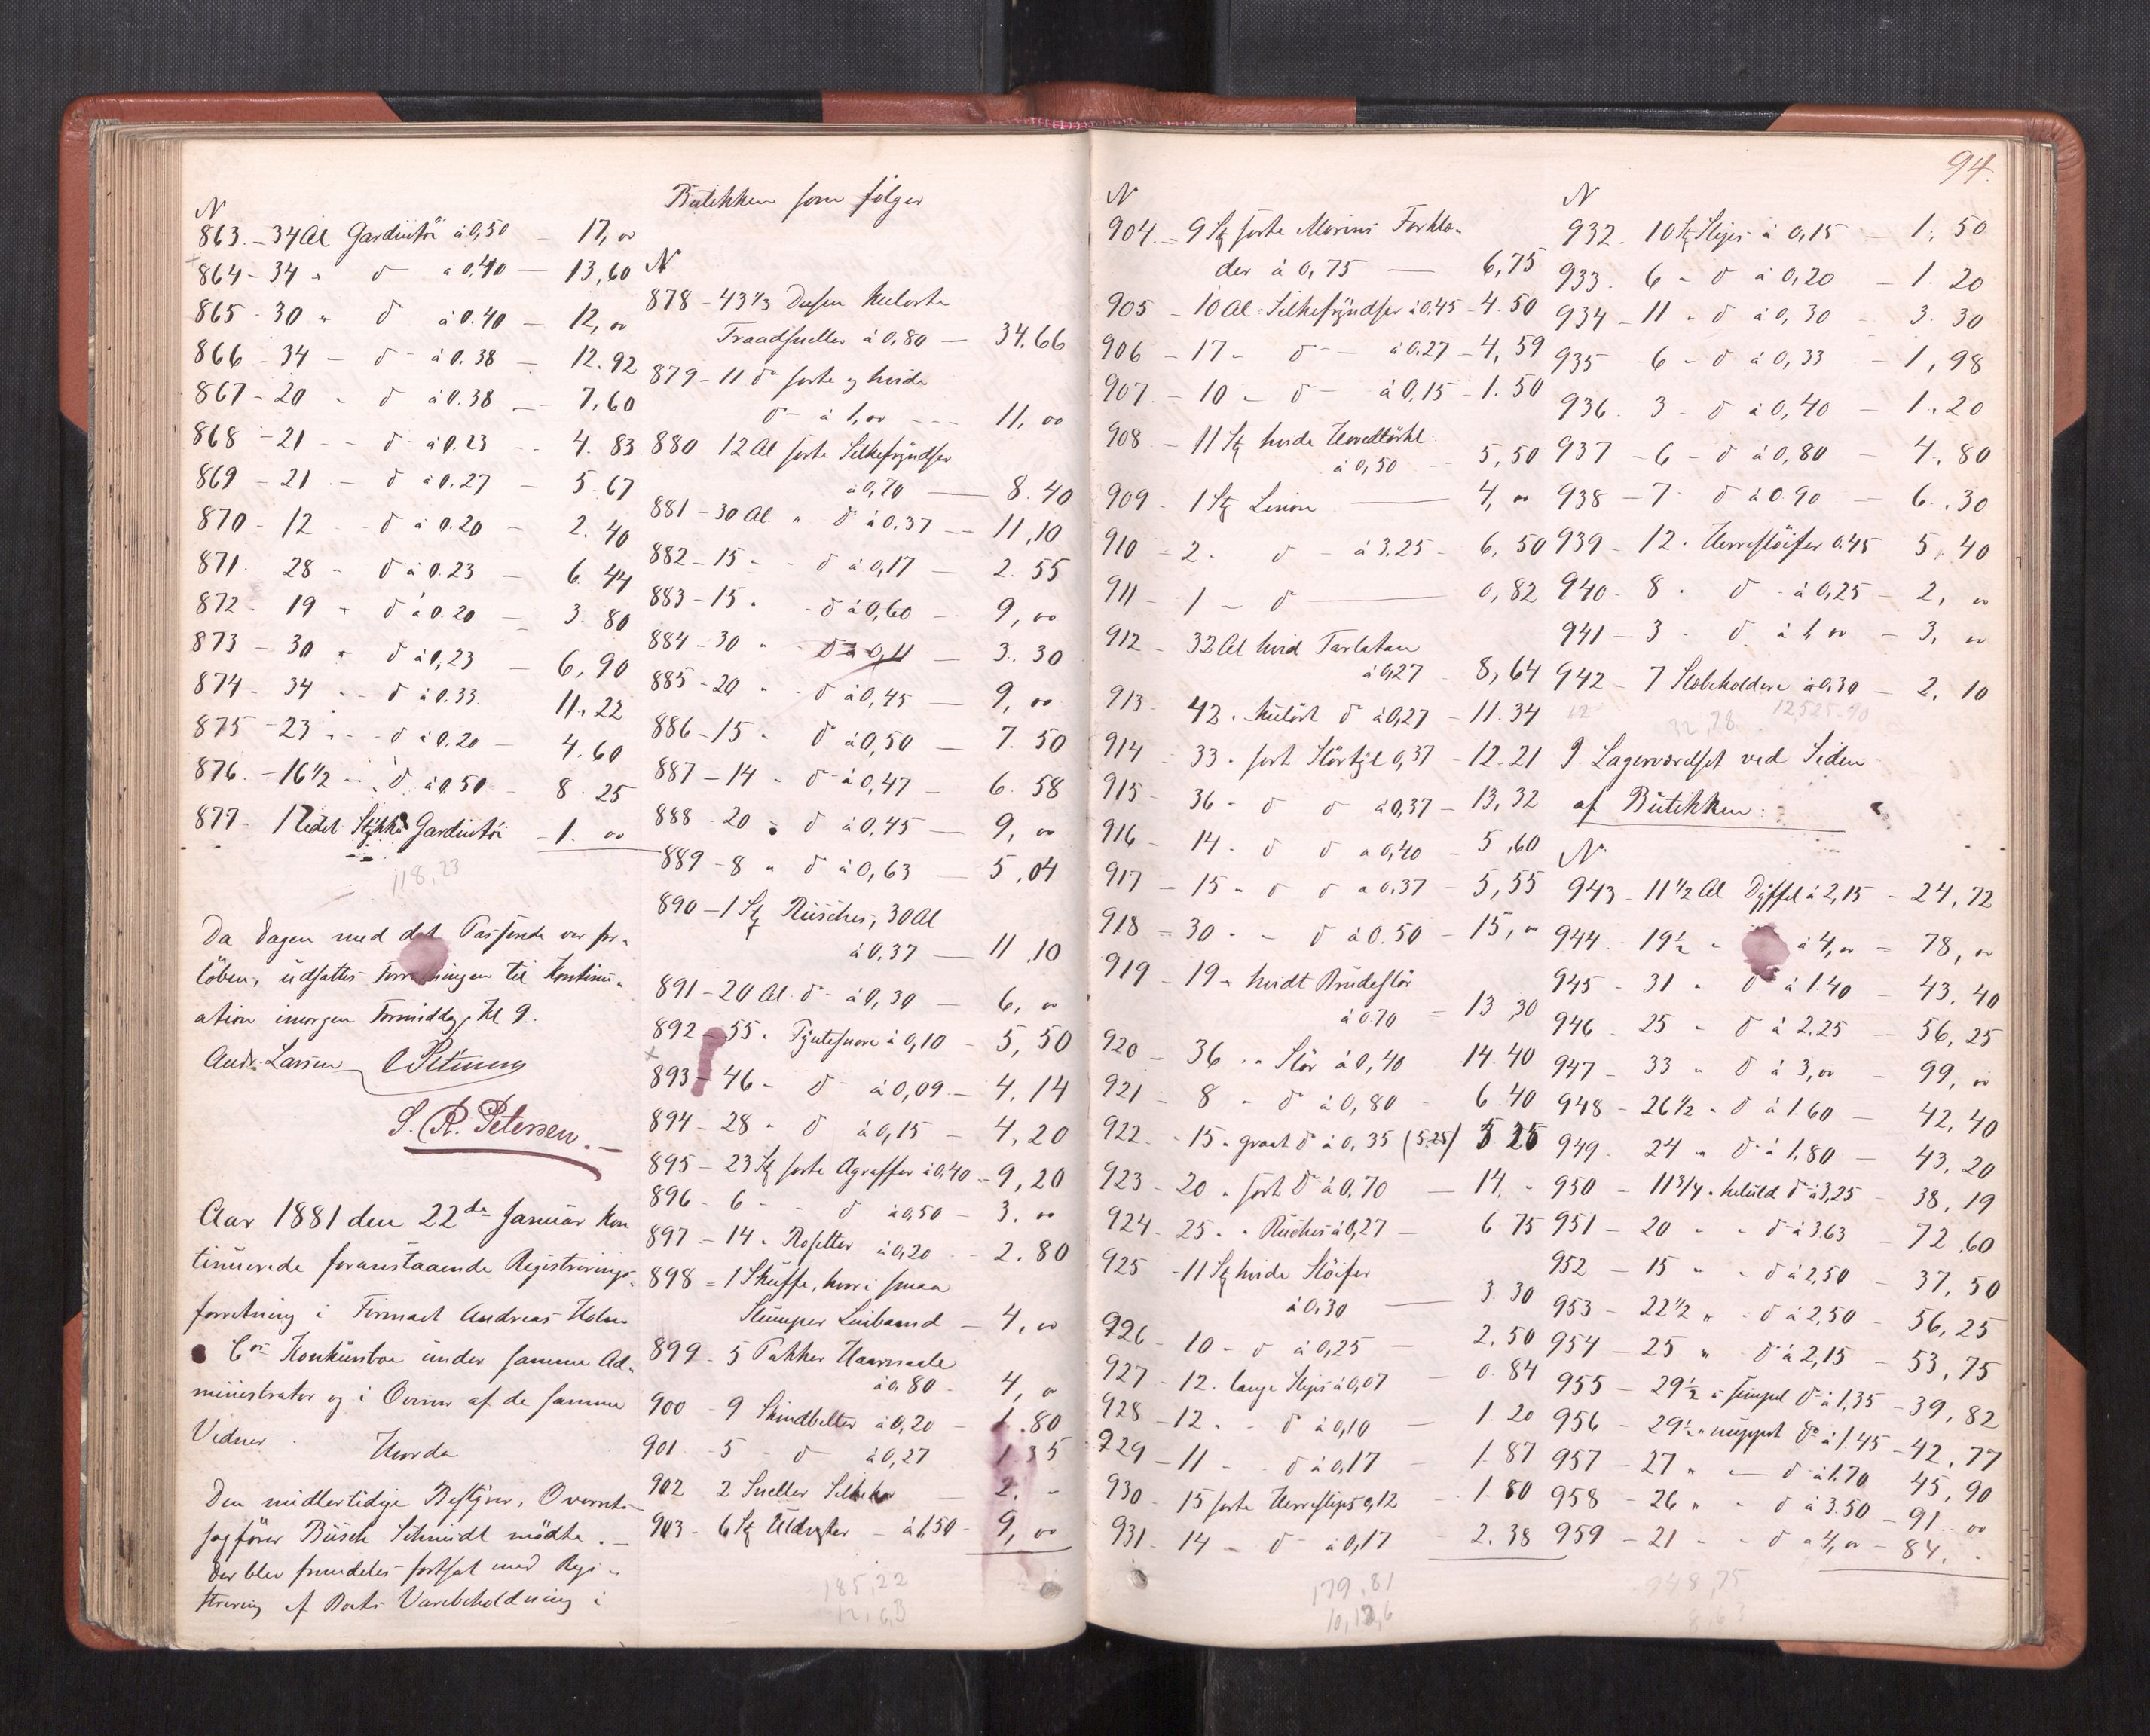 N
863. - 34 Al Gardintöi à 0,50 - 17, 00
864 - 34 " d° à 0,40 - 13,60
865 - 30 " d° à 0.40 - 12, 00
866 - 34 - d° à 0.38 - 12.92
867 - 20 - d° à 0.38 - 7.60
868 - 21 - - d° à 0.23 - - 4. 83
869 - 21 - - d° à 0.27 - 5.67
870 - 12 - d° à 0.20 - 2.40
871. 28 - d° à 0.23 - 6.44
872 - 19 - d° à 0.20 - 3.80
873 - 30 " d° à 0,23 - 6,90
874 - 34 - - d° à 0.33. 11.22
875 - 23 - - d° à 0.20 - 4.60
876. - 16 1/2 - d° à 0.50 - 8.25
877 - 1 Stykke Gardintöi - 1. 00
118,23
Da dagen med det Passerede var for-
löben, udsattes Forretningen til Kontinu-
ation imorgen Formiddag Kl 9.
Andr. Larsen
S. R. Petersen. -
Aar 1881 den 22de Januar Kon
tinuerede foranstaaende Registrerings-
forretning i Firmaet Andreas Holm
& Co Konkursbo under samme Ad-
ministrator og i Overvær af de samme
Vidner. Hvorda
Den midlertidige Bestyrer, Overrets-
sagförer Busch Schmidt mödte. -
Der blev fremdeles fortsat med Regi-
strering af Boets Varebeholdning i
Butikken som fölger
N
878 - 43 1/3 Dusin kulörte
Traadsneller à 0,80 - 34.66
879 - 11 d° sorte og hvide
d° à 1,00 - - - 11, 00
880 12 Al sorte Silkefryndser
à 0,70 - 8.40
881 - 30 Al. " d° à 0,37 - - 11,10
882 - 15 - - d° à 0,17 - 2.55
883 - 15. - d° à 0,60 - 9, 00
884 - 30 - d° à 0,11 - 3.30
885 - 20 " - d° à 0,45 - 9, 00
886 - 15 - d° à 0,50 - 7.50
887 - 14 - d° à 0,47 - 6.58
888 - 20 " d° à 0,45 - 9, 00
889 - 8 " d° à 0,63 - 5,04
890 - 1 Stk Rüscher, 30 Al
à 0.37 - 11.10
891 - 20 Al. d° à 0,30 - 6, 00
892 - 55. Pyntesnore à 0,10 - 5,50
893 - 46 - d° à 0,09. - 4.14
894 - 28 - d° à 0,15 - 4,20
895 - 23 Stk sorte Agraffer à 0,40 - 9,20
896 - 6 - - d° à 0,50 - 3. 00
897 - 14. Rosetter à 0,20 - - 2.80
898 = 1 Skuffe, hvori smaa
Stumper Linbaand - 4, 00
899 - 5 Pakker Haarnaale
à 0,80 - 4, 00
900 - 9 Skindbelter à 0,20 - 1.80
901 - 5 - d° à 0,27 1 35
902 2 Sneller - 2. -
903 - 6 Stk Uldvester - à 1,50 - 9, 00
185,22
94.
N
904. - 9 Stk sorte Merinos Forklæ-
der à 0,75 - 6,75
905 - 10 Al. Silkefryndser à 0.45 - 4.50
906 - 17 - d° - à 0.27 - 4,59
907. - 10 - d° - à 0,15 - 1.50
908 - 11 Stk hvide Hovedtörkl.
à 0,50 - - 5,50
909 - 1 Stk Linon - 4, 00
910 - 2. d° - à 3.25 - 6,50
911 - 1 - d° - 0,82
912 - 32 Al hvid Tarlatan
à 0,27 8,64
913 - 42. kulört d° à 0,27 - 11.34
914 - 33. sort Slörtyl 0,37 - 12.21
915 - 36 - d° d° à 0,37 - 13,32
916 - 14. d° d° à 0,40 - 5,60
917 - 15 - d° d° à 0.37 - 5,55
918 - 30 - - d° à 0.50 - 15, 00
919 - 19 " hvidt Brudeslör
à 0.70 = 13 30
920 - 36 . - Slör à 0,40 14.40
921 - 8 - d° à 0,80 - 6.40
922. - 15 - graat d° à 0,35 (5.25) 5 25
923 - 20 " sort d° à 0.70 - 14, -
924 - 25. - Rüscher à 0,27 - 6 75
925 - 11 Stk hvide Slöifer
à 0.30 - 3.30
926 - 10 - d° à 0,25 - 2.50
927 - 12. lange Slips à 0,07 - 0.84
928 - 12. - d° à 0,10 - 1.20
929 - 11 - - d° à 0,17 - 1.87
930 - 15 sorte Herreslips 0,12 - 1.80
931 - 14 - d° à 0,17 - 2.38
179,81
N
932. 10 Stk Slips à 0,15 - 1.50
933. 6 - d° à 0,20 - 1.20
934 - 11 - d° à 0,30 - 3.30
935 - 6 - d° à 0,33 - 1,98
936. 3 - d° à 0,40 - 1.20
937 - 6 - d° à 0,80 - 4.80
938 - 7 - d° à 0.90 - 6.30
939 - 12. Herreslöifer 0.45 5,40
940 - 8. d° à 0,25 - 2, 00
941 - 3. d° à 1, 00 - 3, 00
942 - 7 à 0,30 - 2.10
32,78
I Lagerværelset ved Siden
af Butikken.
N.
943 - 11 1/2 Al Dyffel à 2,15 - 24,72
944 - 19 1/2 - à 4,00 - 78, 00
945 - 31 - d° à 1.40 - 43,40
946 - 25 - d° à 2.25 - 56,25
947 - 33 - d° à 3,00 - 99, 00
948 - 26 1/2 - d° à 1.60 - 42,40
949 - 24 " d° à 1.80 - 43,20
950 - 11 3/4 " d° à 3,25 - 38,19
951 - 20 - - d° à 3.63 - 72.60
952 - 15 " - d° à 2,50 - 37,50
953 - 22 1/2 " - d° à 2,50 - 56,25
954 - 25 " d° à 2,15 - 53,75
955 - 29 1/2 " d° à 1,35 - 39,82
956 - 29 1/2 " nuppet d° à 1.45 - 42,77
957 - 27 " - d° à 1.70 45,90
958 - 26 " - d° à 3.50 - 91. 00
959 - 21 - - d° à 4,00 - 84. -
948,75